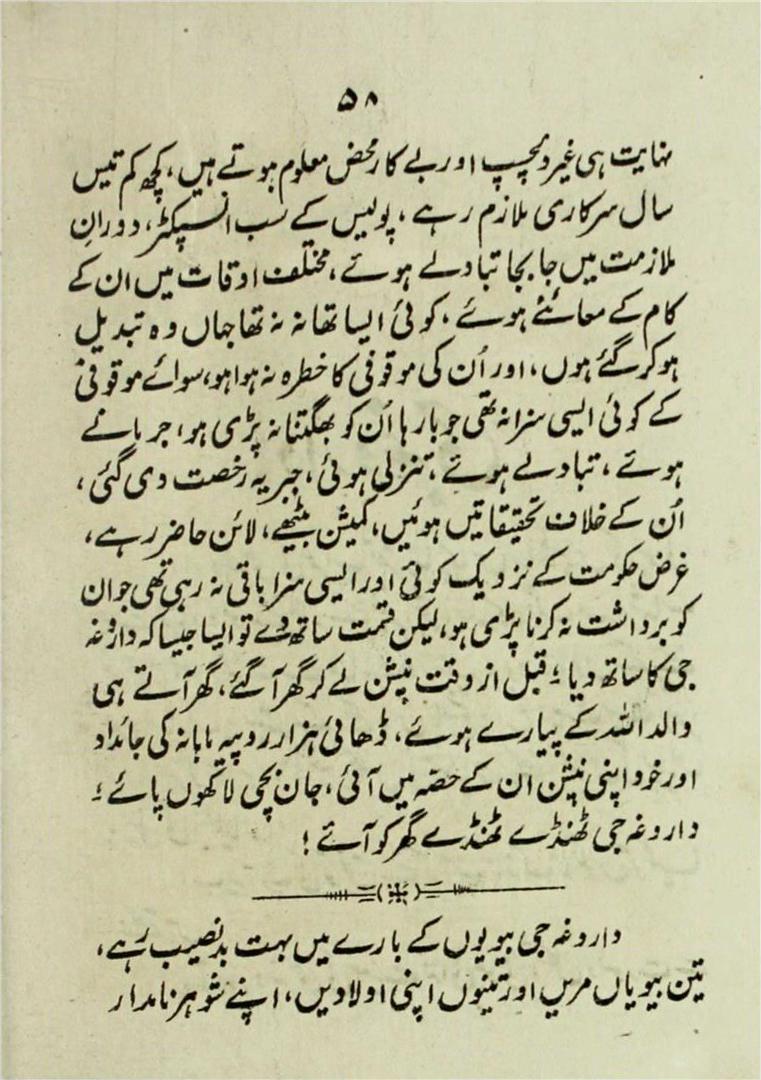 ۵۸
نہایت ہی غیر دلچسپ اور بے کار محض معلوم ہوتے ہیں، کچھ کم تیس
سال سرکاری ملازم رہے، پولیس کے سب انسپکٹر، دورانِ
ملازمت میں جا بجا تبادلے ہوئے، مختلف اوقات میں ان کے
کام کے معائنے ہوئے، کوئی ایسا تھانہ نہ تھا جہاں وہ تبدیل
ہو کر گئے ہوں، اور اُن کی موقوفی کا خطرہ نہ ہوا ہو، سوائے موقوفی
کے کوئی ایسی سزا نہ تھی جو بارہا اُن کو بھگتنا نہ پڑی ہو، جرمانے
ہوئے، تبادلے ہوئے، تنزلی ہوئی، جبریہ رخصت دی گئی،
اُن کے خلاف تحقیقاتیں ہوئیں، کمیشن بیٹھے، لائن حاضر رہے،
غرض حکومت کے نزدیک کوئی اور ایسی سزا باقی نہ رہی تھی جو ان
کو برداشت نہ کرنا پڑی ہو، لیکن قسمت ساتھ دے تو ایسا جیسا کہ داروغہ
جی کا ساتھ دیا؛ قبل از وقت پنشن لے کر گھر آ گئے، گھر آتے ہی
والد اللہ کے پیارے ہوئے، ڈھائی ہزار روپیہ ماہانہ کی جائداد
اور خود اپنی پنشن ان کے حصّہ میں آئی، جان بچی لاکھوں پائے؛
داروغہ جی ٹھنڈے ٹھنڈے گھر کو آئے!
داروغہ جی بیویوں کے بارے میں بہت بدنصیب رہے،
تین بیویاں مریں اور تینوں اپنی اولادیں، اپنے شوہر نامدار